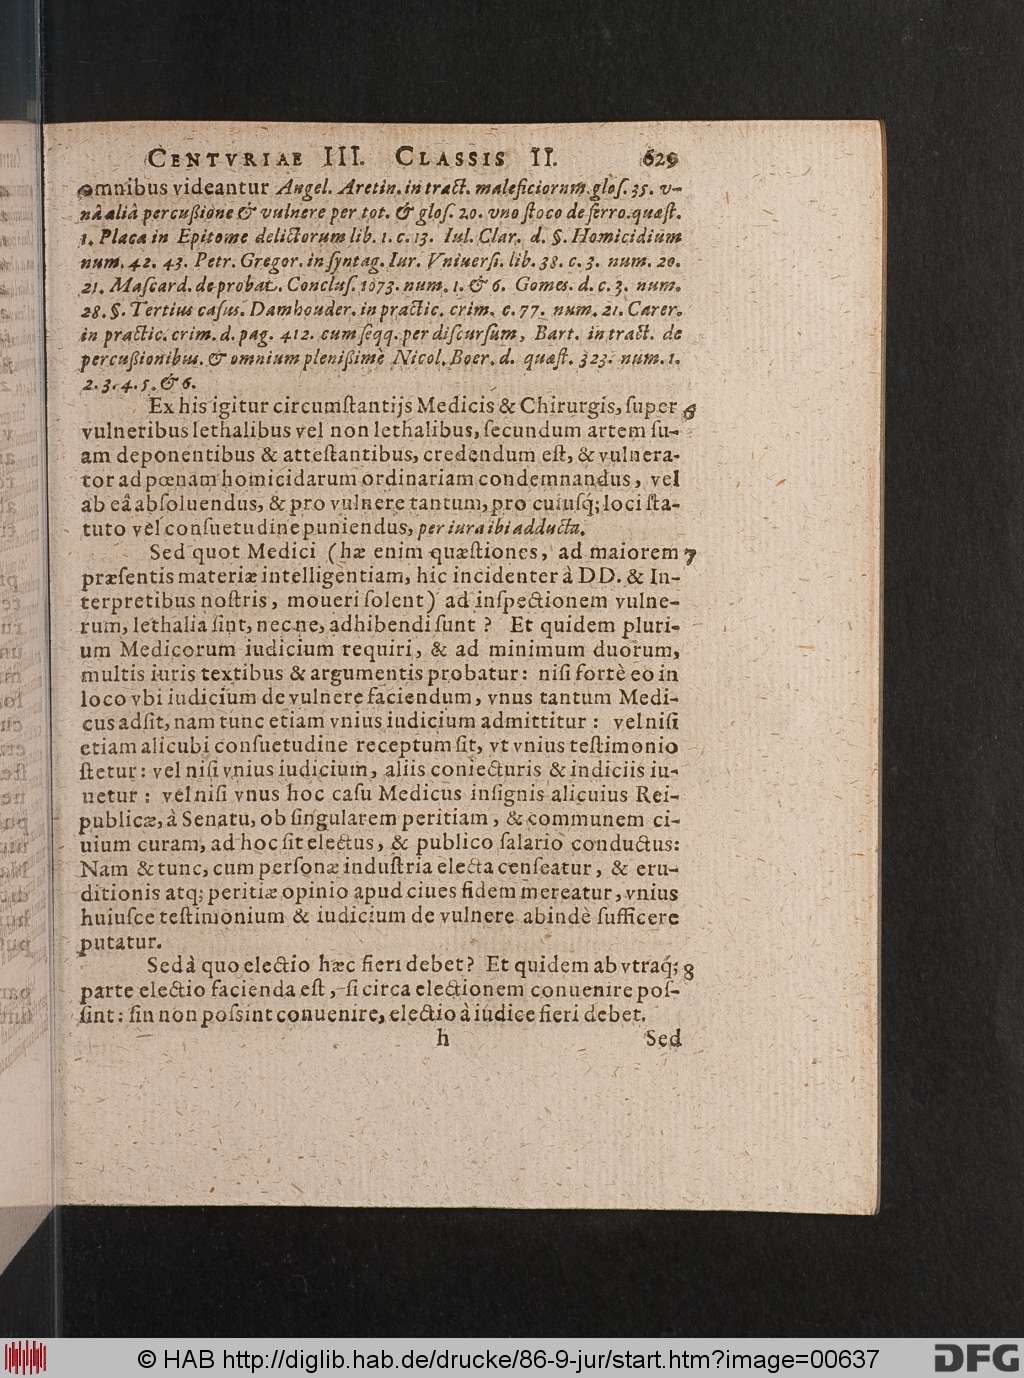 CENTVRIAE III. CLASSIS II. 629
omnibus videantur Angel. Aretin. in tract. maleficiorum. glos. 35. v-
nâ aliâ percußione & vulnere per tot. & glos. 20. vno stoco de ferro. quæst.
1. Placa in Epitome delictorum lib. 1. c. 13. Iul. Clar. d. §. Homicidium
num. 42. 43. Petr. Gregor. in syntag. Iur. Vniuersi. lib. 38. c. 3. num. 20.
21. Mascard. de probat. Conclus. 1073. num. 1. & 6. Gomes. d. c. 3. num.
28. §. Tertius casus. Damhouder. in practic. crim. c. 77. num. 21. Carer.
in practic. crim. d. pag. 412. cum seqq. per discursum, Bart. in tract. de
percußionibus. & omnium plenißimè Nicol. Boer. d. quæst. 323. num. 1.
2. 3. 4. 5. & 6.
Ex his igitur circumſtantijs Medicis & Chirurgis, ſuper 6
vulneribus lethalibus vel non lethalibus, ſecundum artem ſu-
am deponentibus & atteſtantibus, credendum eſt, & vulnera-
tor ad pœnam homicidarum ordinariam condemnandus, vel
ab eâ abſoluendus, & pro vulnere tantum, pro cuiuſq́; loci ſta-
tuto vel conſuetudine puniendus, per iura ibi adducta.
Sed quot Medici (hæ enim quæſtiones, ad maiorem 7
præſentis materiæ intelligentiam, hic incidenter à DD. & In-
terpretibus noſtris, moueri ſolent) ad inſpectionem vulne-
rum, lethalia ſint, nec ne, adhibendi ſunt ? Et quidem pluri-
um Medicorum iudicium requiri, & ad minimum duorum,
multis iuris textibus & argumentis probatur: niſi fortè eo in
loco vbi iudicium de vulnere faciendum, vnus tantum Medi-
cus adſit, nam tunc etiam vnius iudicium admittitur : vel niſi
etiam alicubi conſuetudine receptum ſit, vt vnius teſtimonio
ſtetur: vel niſi vnius iudicium, aliis coniecturis & indiciis iu-
uetur : vel niſi vnus hoc caſu Medicus inſignis alicuius Rei-
publicæ, à Senatu, ob ſingularem peritiam, & communem ci-
uium curam, ad hoc ſit electus, & publico ſalario conductus:
Nam & tunc, cum perſonæ induſtria electa cenſeatur, & eru-
ditionis atq; peritiæ opinio apud ciues fidem mereatur, vnius
huiuſce teſtimonium & iudicium de vulnere abindè ſufficere
putatur.
Sed à quo electio hæc fieri debet? Et quidem ab vtraq́; 8
parte electio facienda eſt, ſi circa electionem conuenire poſ-
ſint: ſin non poſsint conuenire, electio à iudice fieri debet.
h Sed
© HAB http://diglib.hab.de/drucke/86-9-jur/start.htm?image=00637 DFG